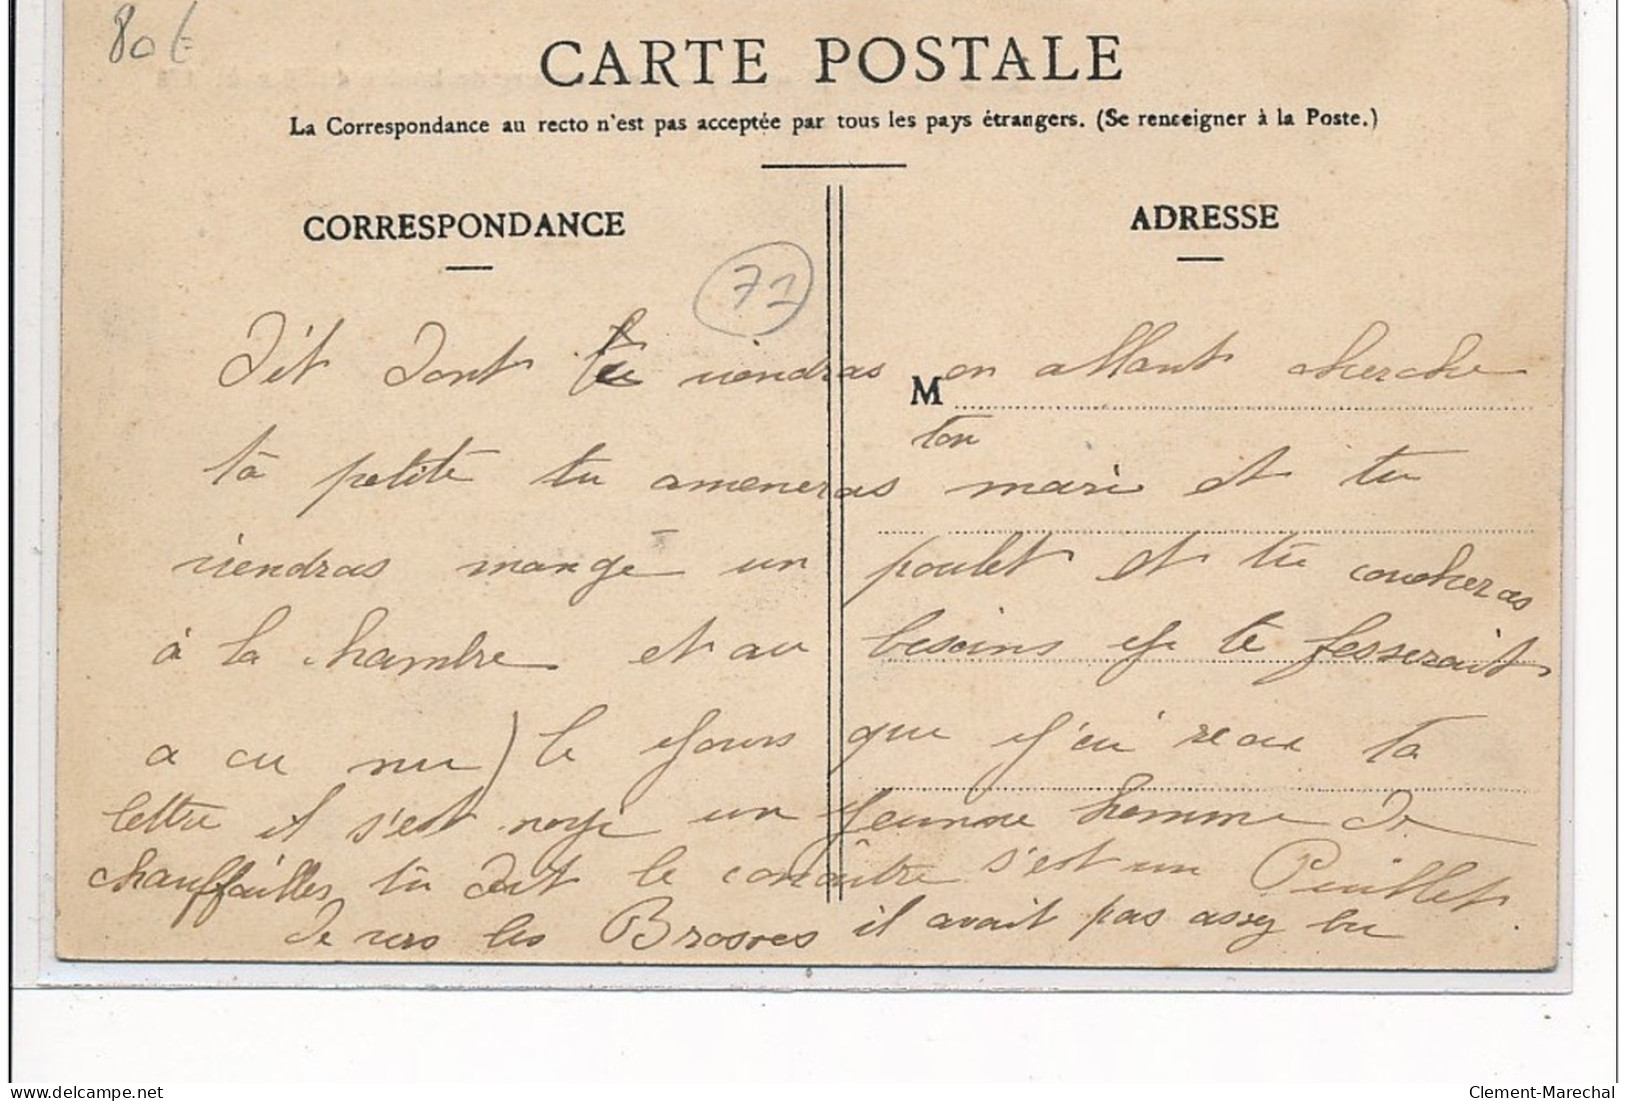 80€
CARTE POSTALE
La Correspondance au recto n'est pas acceptée par tous les pays étrangers. (Se renseigner à la Poste.)
CORRESPONDANCE
ADRESSE
71
M
Dit dont tu viendras en allant cherche
ta petite tu ameneras ton mari et tu
viendras mangé un poulet et tu coucheras
à la chambre et au besoins je te fesserait
a cu nu) le jours que j'ai recu ta
lettre il s'est noyé un jeunne homme de
chauffailles tu doit le conaître s'est un Puillet
de vers les Brosses il avait pas assez bu
delcampe.net
Clement-Marechal